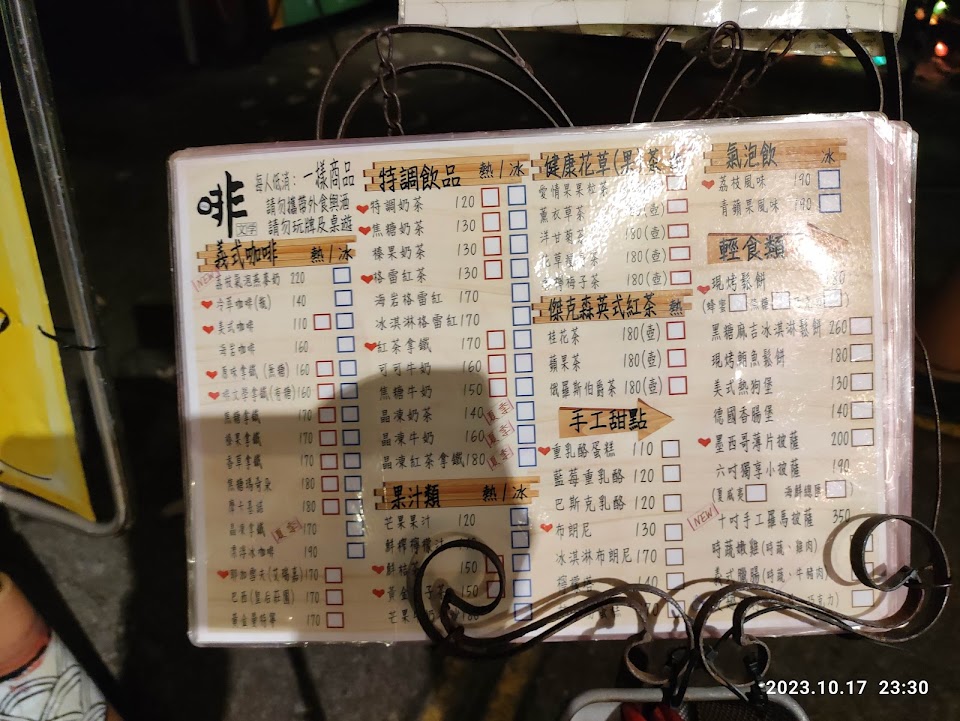 啡
文學
每人低消：一樣商品
請勿攜帶外食與酒
請勿玩牌及桌遊
義式咖啡 熱/冰
NEW 220
冷萃咖啡(瓶) 140
美式咖啡 110
海岩咖啡 160
原味拿鐵(無糖) 160
啡文學拿鐵(有糖) 160
焦糖拿鐵 170
榛果拿鐵 170
香草拿鐵 170
焦糖瑪奇朵 180
摩卡基諾 180
晶凍拿鐵 夏季 170
漂浮冰咖啡 190
耶加雪夫 170
巴西(皇后莊園) 170
黃金曼特寧 170
特調飲品 熱/冰
特調奶茶 120
焦糖奶茶 130
榛果奶茶 130
格雷紅茶 130
海岩格雷紅 170
冰淇淋格雷紅 170
紅茶拿鐵 170
可可牛奶 160
焦糖牛奶 150
晶凍奶茶 140 夏季
晶凍牛奶 160 夏季
晶凍紅茶拿鐵 180 夏季
果汁類 熱/冰
芒果果汁 120
鮮榨檸檬汁
鮮桔茶 150
黃金 子茶 150
芒果 奶 180
健康花草(果)茶
愛情果果粒茶
薰衣草茶 (壺)
洋甘菊茶 180(壺)
花草 茶 180(壺)
梅子茶 180(壺)
傑克森英式紅茶 熱
桂花茶 180(壺)
蘋果茶 180(壺)
俄羅斯伯爵茶 180(壺)
手工甜點
重乳酪蛋糕 110
藍莓重乳酪 120
巴斯克乳酪 120
布朗尼 130
冰淇淋布朗尼 170
檸檬 140
170
氣泡飲 冰
荔枝風味 190
青蘋果風味 190
輕食類
現烤鬆餅 180
(蜂蜜
黑糖麻吉冰淇淋鬆餅 260
現烤鯛魚鬆餅 180
美式熱狗堡 130
德國香腸堡 140
墨西哥薄片披薩 200
六吋獨享小披薩 190
(夏威夷 海鮮總匯
NEW 十吋手工羅馬披薩 350
時蔬嫩雞(時蔬、雞肉)
義式臘腸(時蔬、牛豬肉)
巧克力)
2023.10.17 23:30